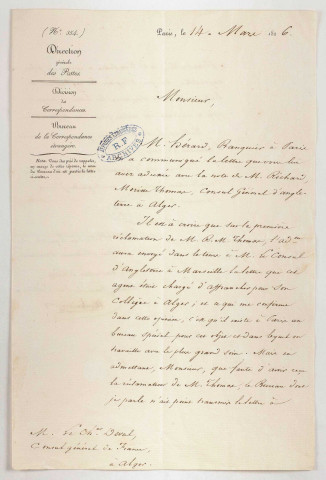 (N.° 384.)
Direction
générale
des Postes.
Division
des
Correspondances.
Bureau
de la Correspondance
étrangère.
Paris, le 14 Mars 1826.
Monsieur,
R.F
ARCHIVES
M. Gérard, Banquier à Paris
a communiqué la lettre que vous lui
avez adressée avec la note de M. Richard
Thomas, Consul Général d'angle-
terre à Alger.
Il est à croire que sur la première
réclamation de M. R. M. Thomas, l'adon
aura envoyé dans le tems à M. le Consul
d'Angleterre à Marseille la lettre que cet
agent était chargé d'affranchir pour son
Collègue à Alger; et ce qui me confirme
dans cette opinion, c'est qu'il existe à Paris un
bureau spécial pour ces objets et dans lequel on
travaille avec le plus grand soin. Mais en
admettant, Monsieur, que faute d'avoir reçu
la réclamation de M. Thomas, le Bureau dont
je parle n'ait point transmis la lettre à
M. le Ch.er Deval,
Consul général de France,
à Alger.